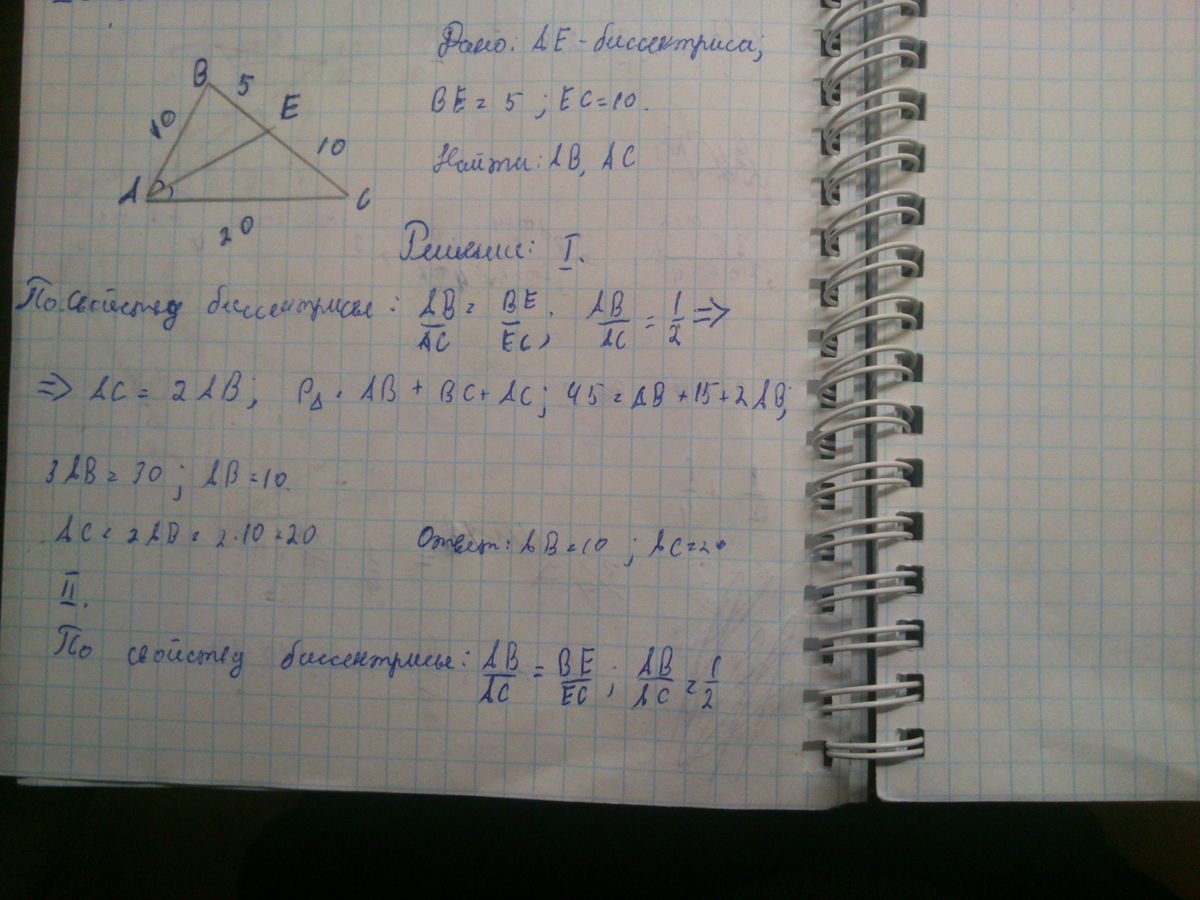 Дано: AE - биссектриса;
B
5
E
BE = 5 ; EC = 10.
10
10
Найти: AB, AC
A
C
20
Решение: I.
По свойству биссектрисы: AB/AC = BE/EC; AB/AC = 1/2 =>
=> AC = 2AB; P△ = AB + BC + AC; 45 = AB + 15 + 2AB;
3AB = 30 ; AB = 10.
AC = 2AB = 2·10 = 20
Ответ: AB = 10 ; AC = 20
II.
По свойству биссектрисы: AB/AC = BE/EC ; AB/AC = 1/2